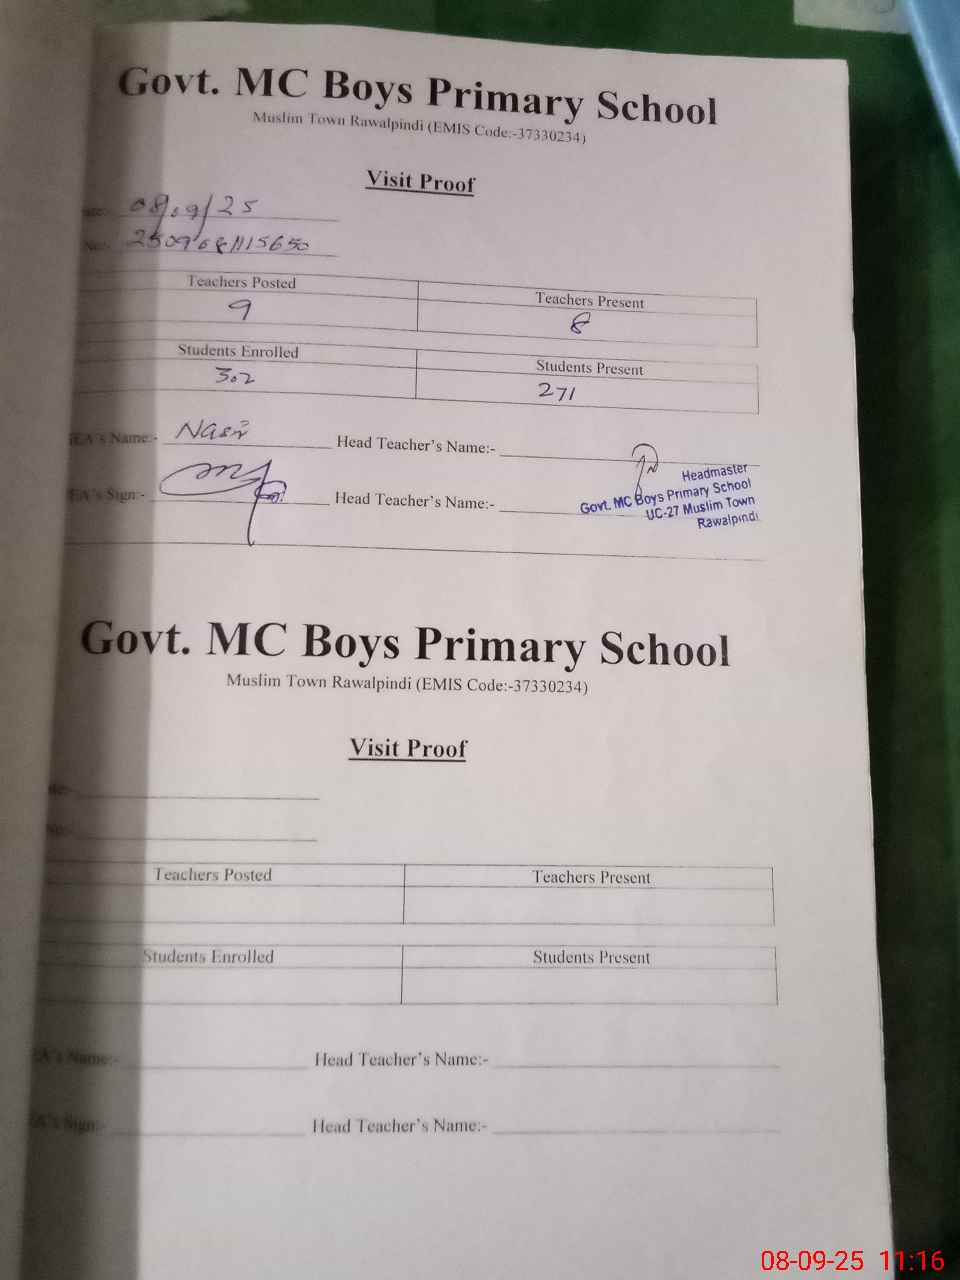 Govt. MC Boys Primary School
Muslim Town Rawalpindi (EMIS Code:-37330234)
Visit Proof
08/09/25
2509081115650
Teachers Posted Teachers Present
9 8
Students Enrolled Students Present
302 271
EA's Name:- Nasir Head Teacher's Name:-
EA's Sign:- Head Teacher's Name:-
Headmaster
Govt. MC Boys Primary School
UC-27 Muslim Town
Rawalpindi
Govt. MC Boys Primary School
Muslim Town Rawalpindi (EMIS Code:-37330234)
Visit Proof
Teachers Posted Teachers Present
Students Enrolled Students Present
EA's Name:- Head Teacher's Name:-
EA's Sign:- Head Teacher's Name:-
08-09-25 11:16